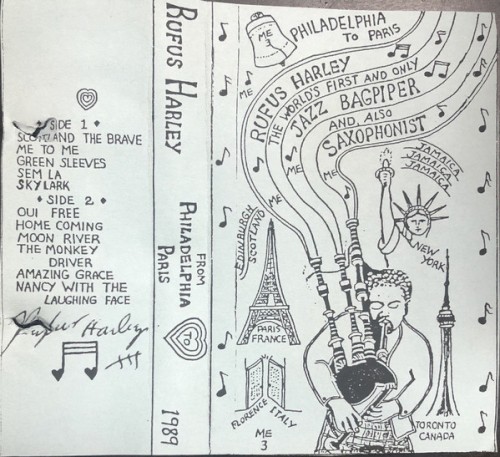 SIDE 1
SCOTLAND THE BRAVE
ME TO ME
GREEN SLEEVES
SEM LA
SKYLARK
SIDE 2
OUI FREE
HOME COMING
MOON RIVER
THE MONKEY
DRIVER
AMAZING GRACE
NANCY WITH THE
LAUGHING FACE
Rufus Harley
RUFUS HARLEY
FROM
PHILADELPHIA
PARIS
1989
ME
3
PHILADELPHIA
TO PARIS
RUFUS HARLEY
THE WORLD'S FIRST AND ONLY
JAZZ BAGPIPER
AND, ALSO
SAXOPHONIST
ME
ME
ME
ME
JAMAICA
JAMAICA
JAMAICA
EDINBURGH
SCOTLAND
NEW
YORK
PARIS
FRANCE
FLORENCE ITALY
ME
3
TORONTO
CANADA